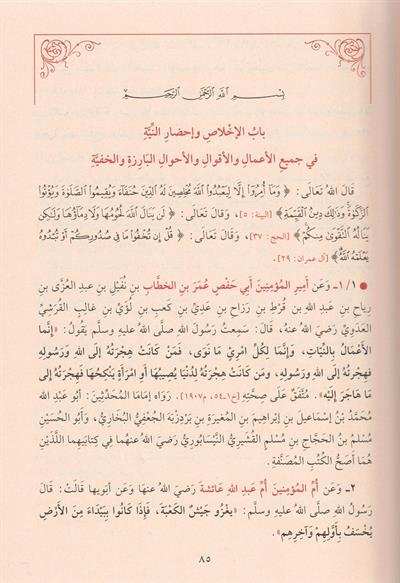 بِسْمِ اللَّهِ الرَّحْمَنِ الرَّحِيمِ
بابُ الإخْلاصِ وإحضارِ النيَّةِ
في جميعِ الأعمالِ والأقوالِ والأحوالِ البَارِزةِ والخفيَّةِ
قَالَ اللهُ تَعَالَى: ﴿ وَمَآ أُمِرُوٓاْ إِلَّا لِيَعْبُدُواْ ٱللَّهَ مُخْلِصِينَ لَهُ ٱلدِّينَ حُنَفَآءَ وَيُقِيمُواْ ٱلصَّلَوٰةَ وَيُؤْتُواْ
ٱلزَّكَوٰةَۚ وَذَٰلِكَ دِينُ ٱلْقَيِّمَةِ ﴾ [البينة: ٥]، وَقَالَ تَعَالَى: ﴿ لَن يَنَالَ ٱللَّهَ لُحُومُهَا وَلَا دِمَآؤُهَا وَلَٰكِن
يَنَالُهُ ٱلتَّقْوَىٰ مِنكُمْ ﴾ [الحج: ٣٧]، وَقَالَ تَعَالَى: ﴿ قُلْ إِن تُخْفُواْ مَا فِي صُدُورِكُمْ أَوْ تُبْدُوهُ
يَعْلَمْهُ ٱللَّهُ ﴾ [آل عمران: ٢٩].
● ١/١- وَعَن أَمِيرِ المُؤْمِنِينَ أَبِي حَفْصٍ عُمَرَ بنِ الخَطَّابِ بنِ نُفَيْلِ بنِ عَبدِ العُزَّى بنِ
رِياحِ بنِ عَبدِ اللهِ بنِ قُرْطِ بنِ رَزَاحِ بنِ عَدِيِّ بنِ كَعبِ بنِ لُؤَيِّ بنِ غالبٍ القُرَشِيِّ
العَدَوِيِّ رَضِيَ اللهُ عنهُ، قَالَ: سَمِعتُ رَسُولَ اللهِ صلَّى اللهُ عليهِ وسلَّم يَقُولُ: «إِنَّما
الأَعْمَالُ بِالنِّيَّاتِ، وَإِنَّمَا لِكُلِّ امْرِئٍ مَا نَوَى، فَمَنْ كَانَتْ هِجْرَتُهُ إِلَى اللهِ وَرَسُولِهِ
فَهِجْرَتُهُ إِلَى اللهِ وَرَسُولِهِ، وَمَنْ كَانَتْ هِجْرَتُهُ لِدُنْيَا يُصِيبُهَا أَوِ امْرَأَةٍ يَنْكِحُهَا فَهِجْرَتُهُ إِلَى
مَا هَاجَرَ إِلَيْهِ». مُتَّفَقٌ عَلَى صِحَّتِهِ [خ١-٥٤، م١٩٠٧]. رَوَاهُ إِمَامَا المُحَدِّثِينَ: أَبُو عَبدِ اللهِ
مُحَمَّدُ بْنُ إِسْمَاعِيلَ بنِ إِبراهِيمَ بنِ المُغِيرَةِ بنِ بَرْدِزْبَهْ الجُعْفِيُّ البُخَارِيُّ، وَأَبُو الحُسَيْنِ
مُسْلِمُ بْنُ الحَجَّاجِ بنِ مُسْلِمٍ القُشَيْرِيُّ النَّيْسَابُورِيُّ رَضِيَ اللهُ عنهُما في كِتابَيهِما اللَّذَيْنِ
هُمَا أَصَحُّ الكُتُبِ المُصَنَّفَةِ.
٢- وَعَن أُمِّ المُؤْمِنِينَ أُمِّ عَبدِ اللهِ عَائِشَةَ رَضِيَ اللهُ عنهَا وَعَن أَبَوَيها قَالَتْ: قَالَ
رَسُولُ اللهِ صلَّى اللهُ عليهِ وسلَّم: «يَغْزُو جَيْشٌ الكَعْبَةَ، فَإِذَا كَانُوا بِبَيْدَاءَ مِنَ الأَرْضِ
يُخْسَفُ بِأَوَّلِهِمْ وَآخِرِهِمْ».
٨٥